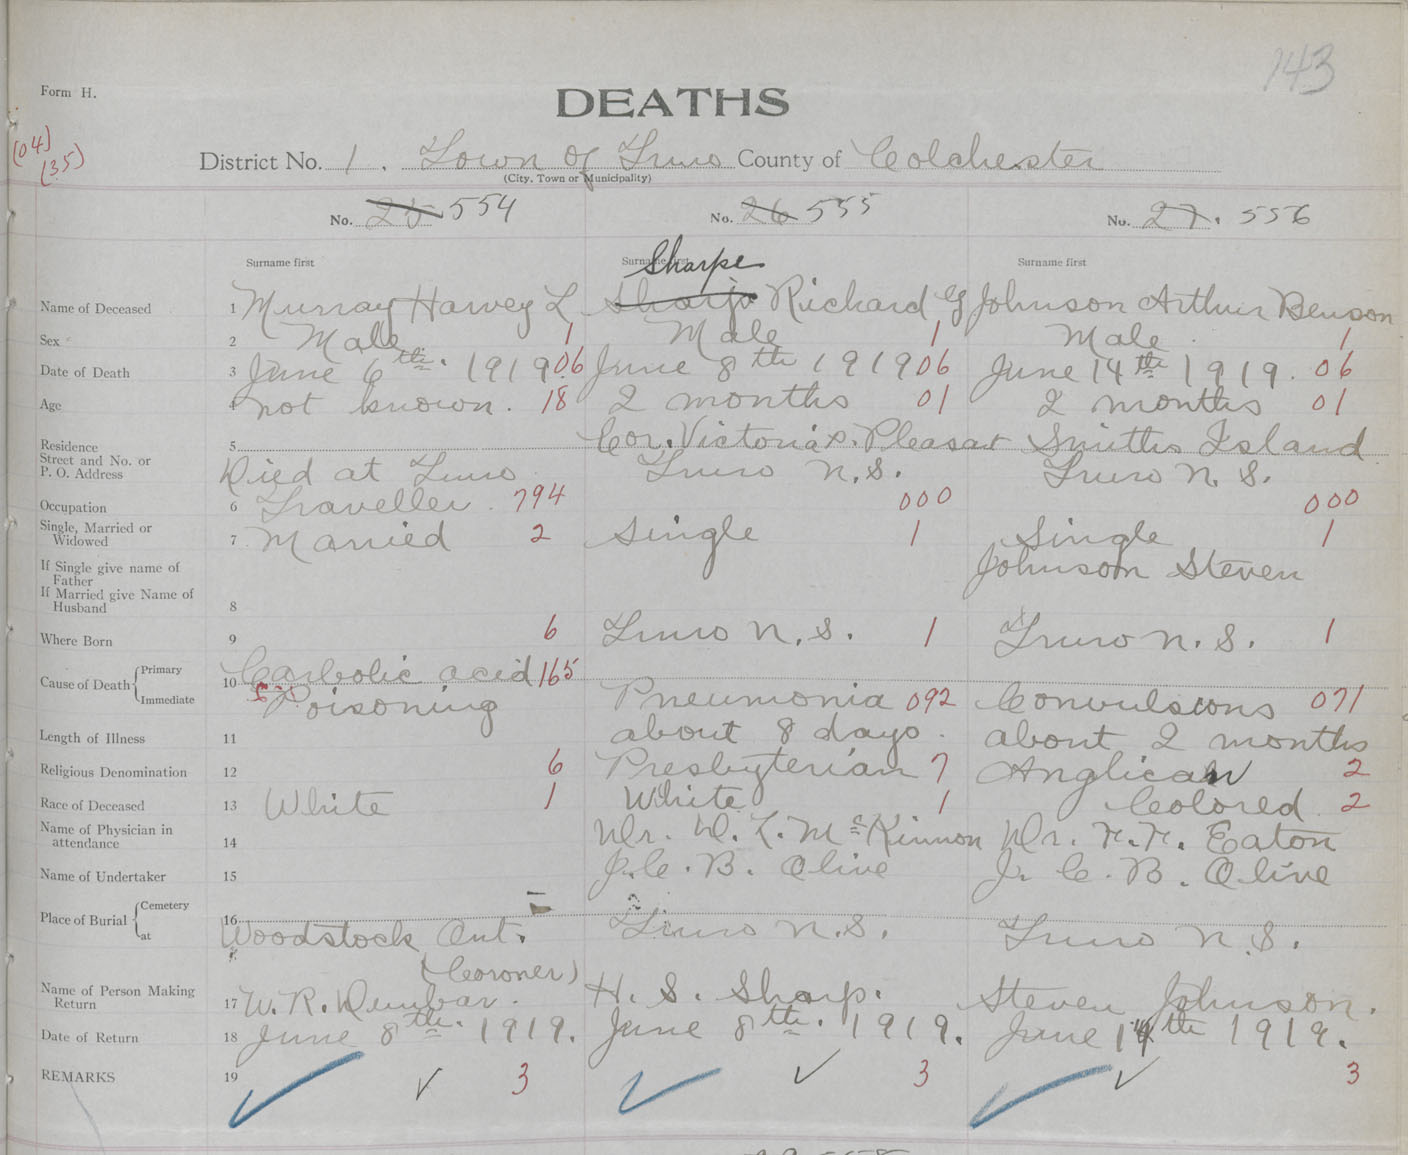 143
Form H.
DEATHS
(04)
(35)
District No. 1. Town of Truro County of Colchester
(City, Town or Municipality)
No. 25 554 No. 26 555 No. 27. 556
Surname first Surname first Surname first
Sharpe
Name of Deceased 1 Murray Harvey L Sharp Richard G Johnson Arthur Benson
Sex 2 Male 1 Male 1 Male 1
Date of Death 3 June 6th. 1919. 06 June 8th 1919 06 June 14th 1919. 06
Age 4 not known. 18 2 months 01 2 months 01
Residence 5 Cor. Victoria & Pleasant Smiths Island
Street and No. or
P. O. Address Died at Truro Truro N.S. Truro N.S.
Occupation 6 Traveller. 794 000 000
Single, Married or
Widowed 7 Married 2 Single 1 Single 1
If Single give name of
Father Johnson Steven
If Married give Name of
Husband 8
Where Born 9 6 Truro N.S. 1 Truro N.S. 1
Cause of Death Primary 10 Carbolic acid 165
Immediate Poisoning Pneumonia 092 Convulsions 071
Length of Illness 11 about 8 days. about 2 months
Religious Denomination 12 6 Presbyterian 7 Anglican 2
Race of Deceased 13 White 1 White 1 Colored 2
Name of Physician in
attendance 14 Dr. D. L. McKinnon Dr. F. F. Eaton
Name of Undertaker 15 J. C. B. Olive J. C. B. Olive
Place of Burial Cemetery 16
at Woodstock Ont. Truro N.S. Truro N.S.
(Coroner)
Name of Person Making
Return 17 W. R. Dunbar. H. S. Sharp. Steven Johnson.
Date of Return 18 June 8th. 1919. June 8th. 1919. June 14th 1919.
REMARKS 19 3 3 3